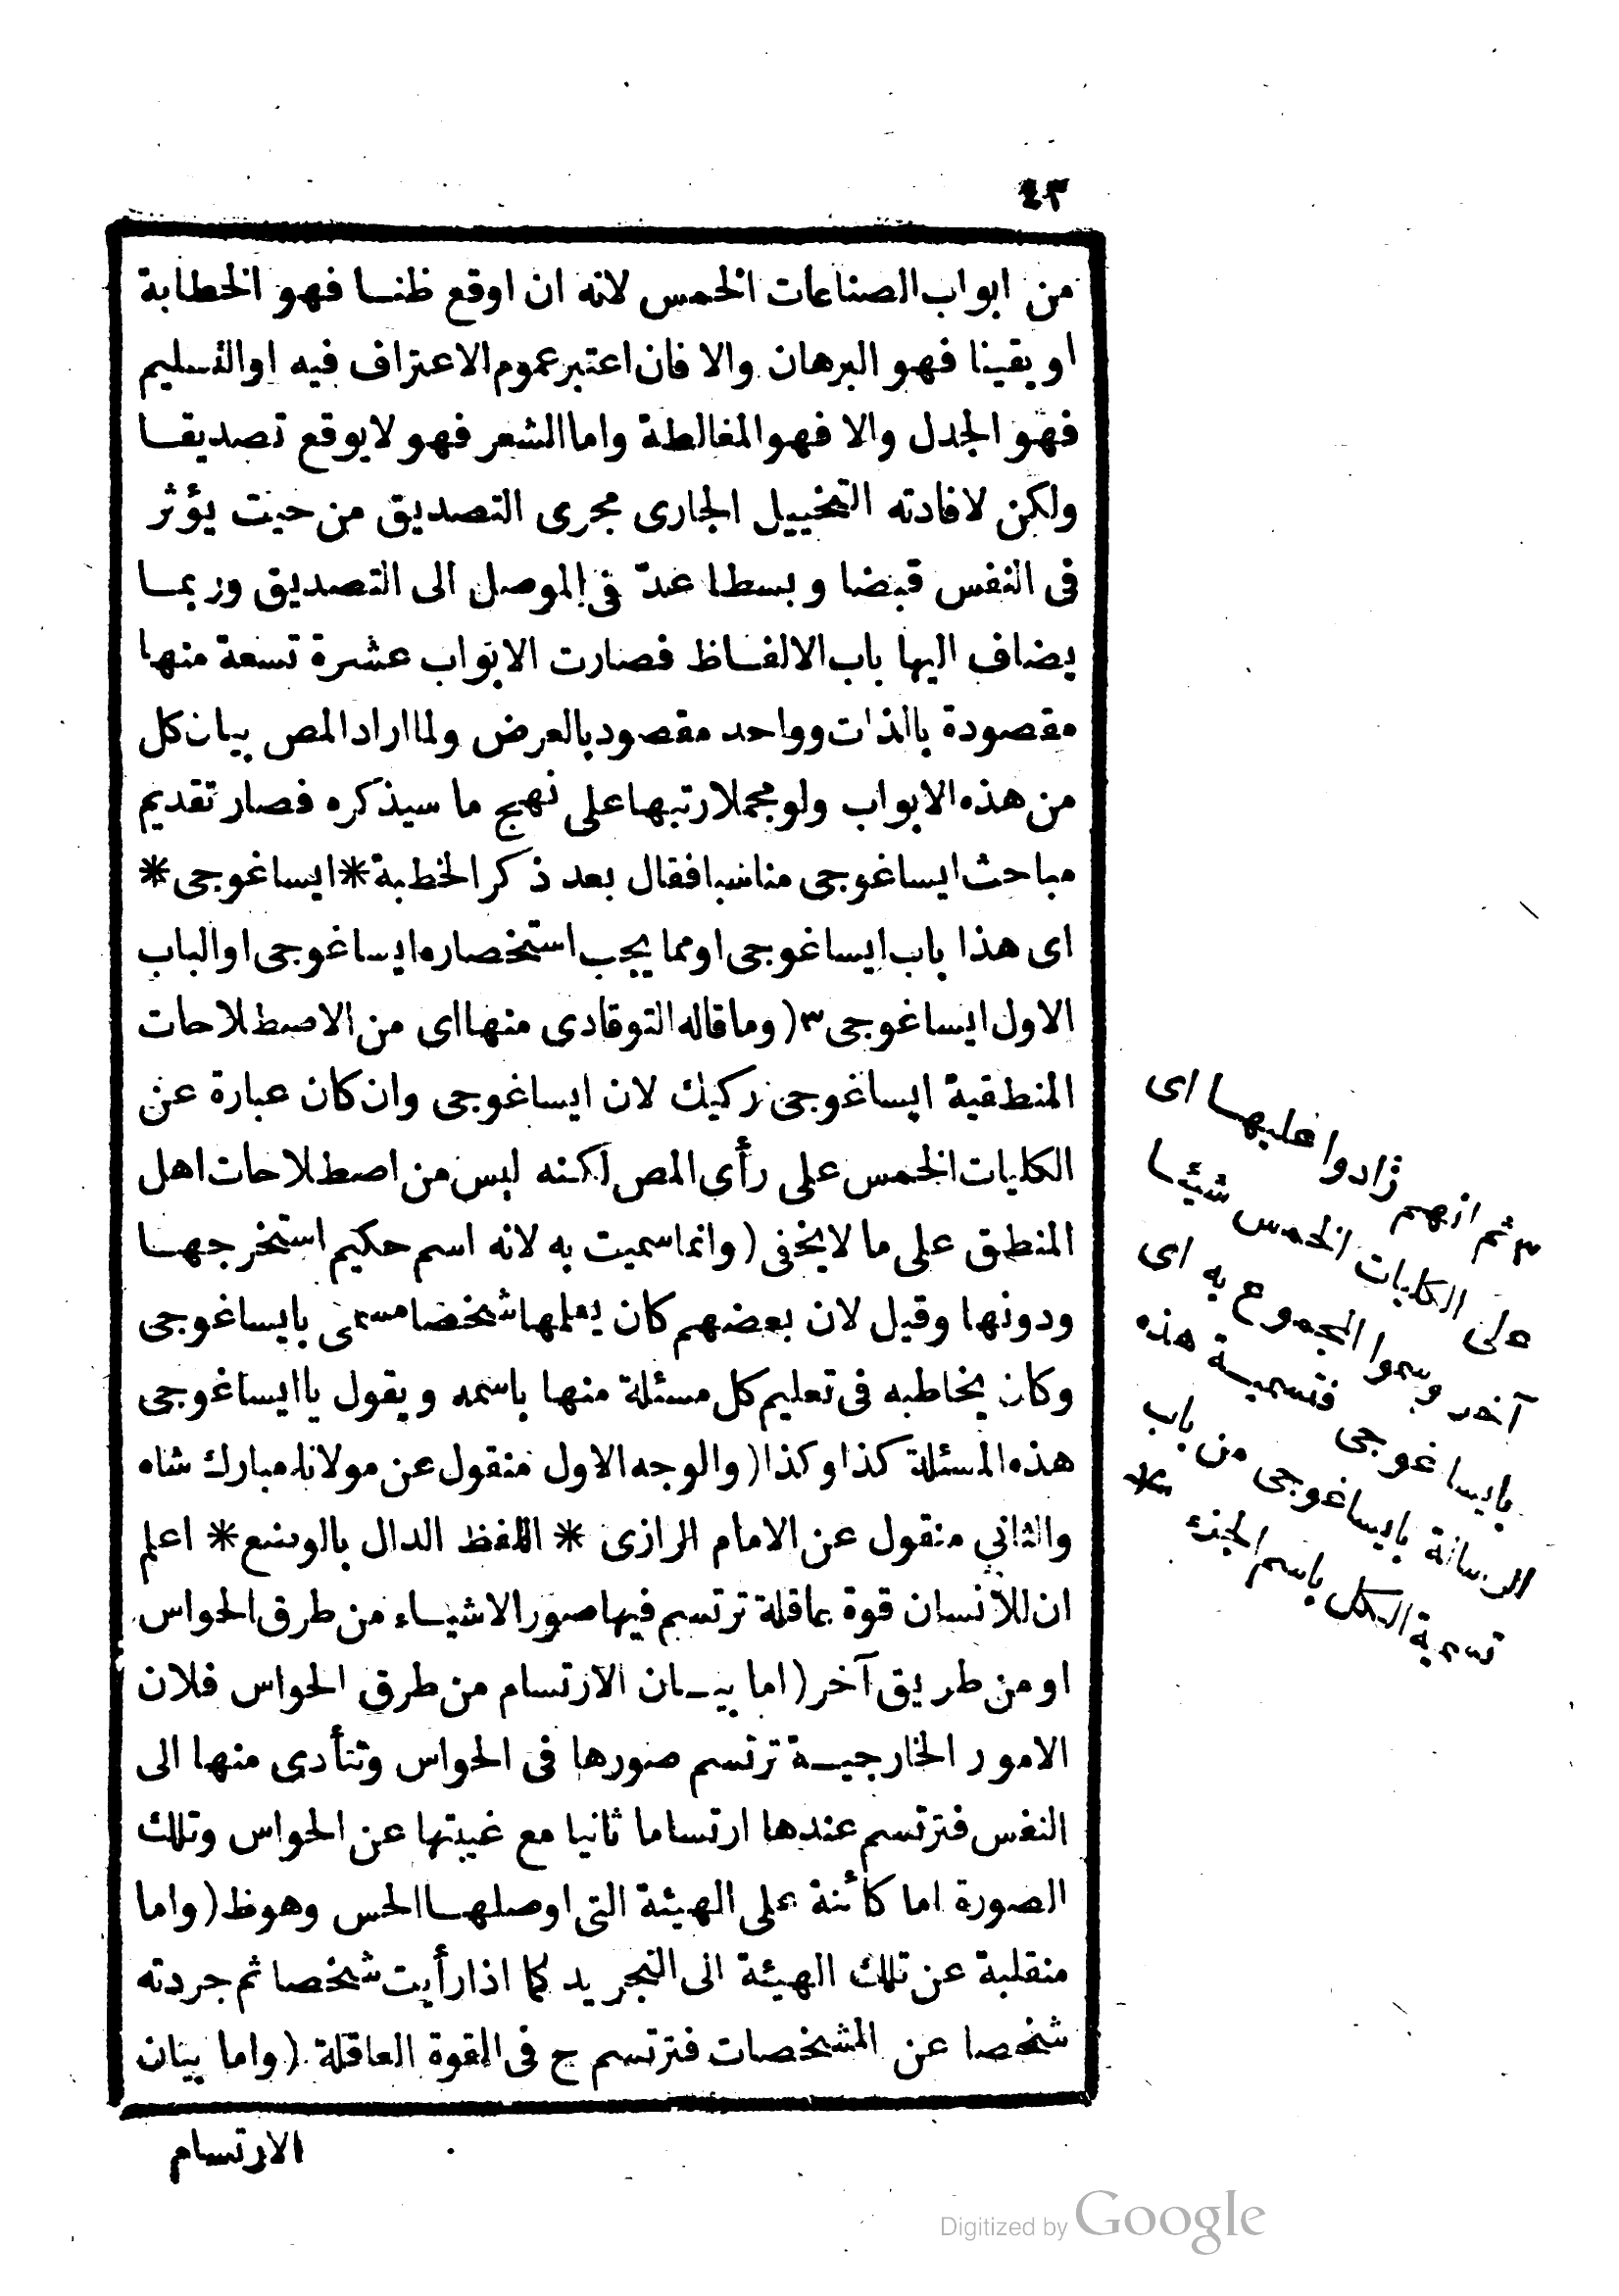 ٤٣
من ابواب الصناعات الخمس لانه ان اوقع ظنا فهو الخطابة
او يقينا فهو البرهان والا فان اعتبر عموم الاعتراف فيه او التسليم
فهو الجدل والا فهو المغالطة واما الشعر فهو لا يوقع تصديقا
ولكن لافادته التخييل الجارى مجرى التصديق من حيث يؤثر
فى النفس قبضا وبسطا عدّ فى الموصل الى التصديق وربما
يضاف اليها باب الالفاظ فصارت الابواب عشرة تسعة منها
مقصودة بالذات وواحد مقصود بالعرض ولما اراد المص بيان كل
من هذه الابواب ولو مجملا رتبها على نهج ما سيذكره فصار تقديم
مباحث ايساغوجى مناسبا فقال بعد ذكر الخطبة * ايساغوجى *
اى هذا باب ايساغوجى او مما يجب استحضاره ايساغوجى او الباب
الاول ايساغوجى ٣ ( وما قاله التوقادى منها اى من الاصطلاحات
المنطقية ايساغوجى ركيك لان ايساغوجى وان كان عبارة عن
الكليات الخمس على رأى المص لكنه ليس من اصطلاحات اهل
المنطق على ما لا يخفى ( وانما سميت به لانه اسم حكيم استخرجها
ودونها وقيل لان بعضهم كان يعلمها شخصا مسمى بايساغوجى
وكان يخاطبه فى تعليم كل مسئلة منها باسمه ويقول يا ايساغوجى
هذه المسئلة كذا وكذا ( والوجه الاول منقول عن مولانا مبارك شاه
والثانى منقول عن الامام الرازى * اللفظ الدال بالوضع * اعلم
ان للانسان قوة عاقلة ترتسم فيها صور الاشياء من طرق الحواس
او من طريق آخر ( اما بيان الارتسام من طرق الحواس فلان
الامور الخارجية ترتسم صورها فى الحواس وتتأدى منها الى
النفس فترتسم عندها ارتساما ثانيا مع غيبتها عن الحواس وتلك
الصورة اما كائنة على الهيئة التى اوصلها الحس وهوظ ( واما
منقلبة عن تلك الهيئة الى التجريد كما اذا رأيت شخصا ثم جردته
شخصا عن المشخصات فترتسم ح فى القوة العاقلة ( واما بيان
الارتسام
٣ ثم انهم زادوا عليها اى
على الكليات الخمس شيئا
آخر وسموا المجموع به اى
بايساغوجى فتسمية هذه
الرسالة بايساغوجى من باب
تسمية الكل باسم الجزء *
Digitized by Google